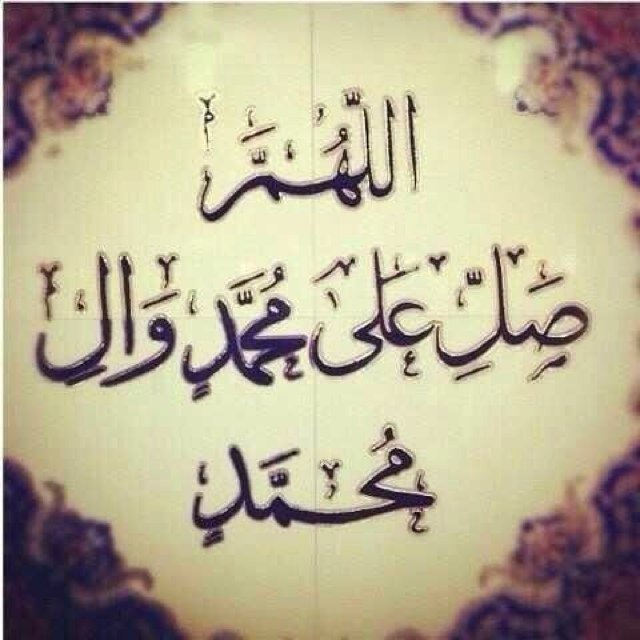 اللَّهُمَّ
صَلِّ عَلى مُحَمَّدٍ وَالِ
مُحَمَّدٍ